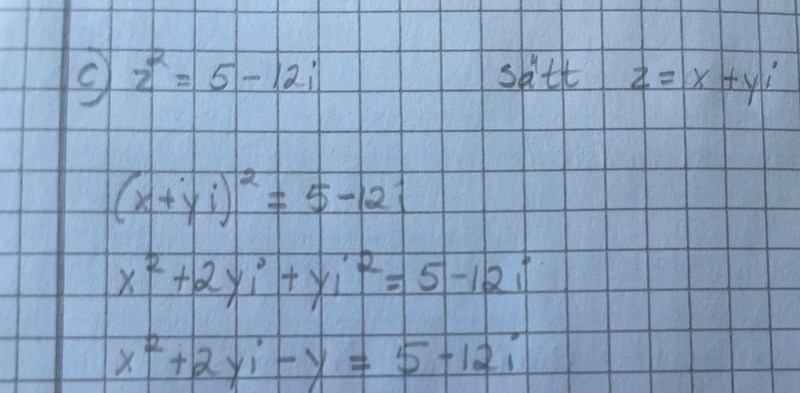 c) z² = 5 - 12i sätt z = x + yi
(x+yi)² = 5-12i
x² + 2yi + yi² = 5-12i
x² + 2yi - y = 5-12i